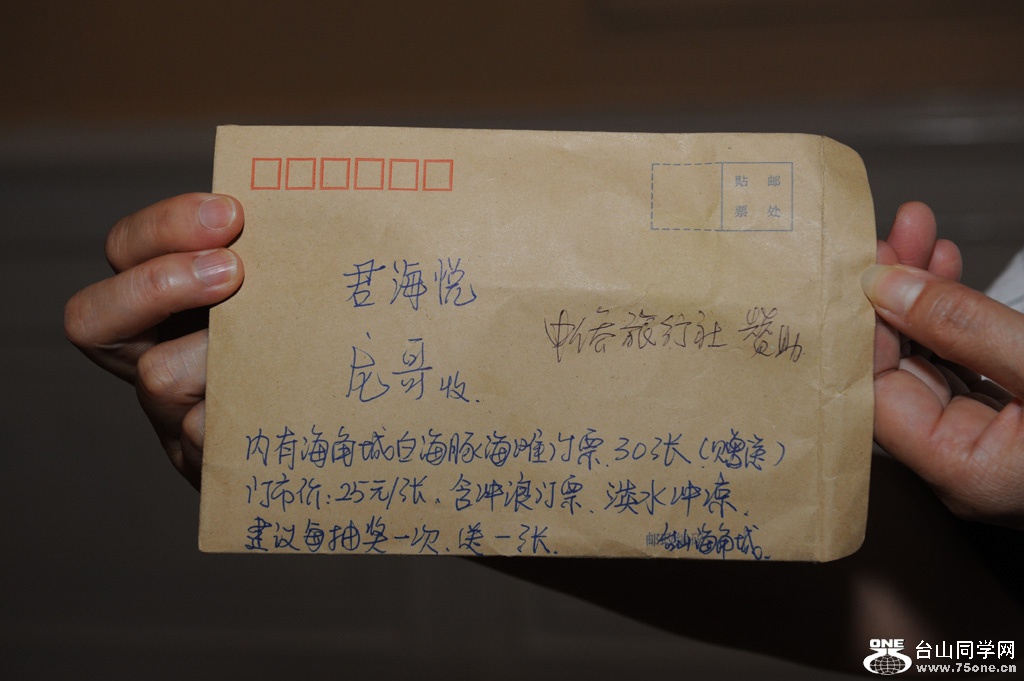 贴 邮
票 处
君海悦
中侨旅行社 赞助
庞哥收.
内有海角城白海豚海滩门票.30张(赠票)
门市价:25元/张.含冲浪门票.淡水冲凉.
建议每抽奖一次.送一张.
台山海角城.
ONE
台山同学网
www.75one.cn